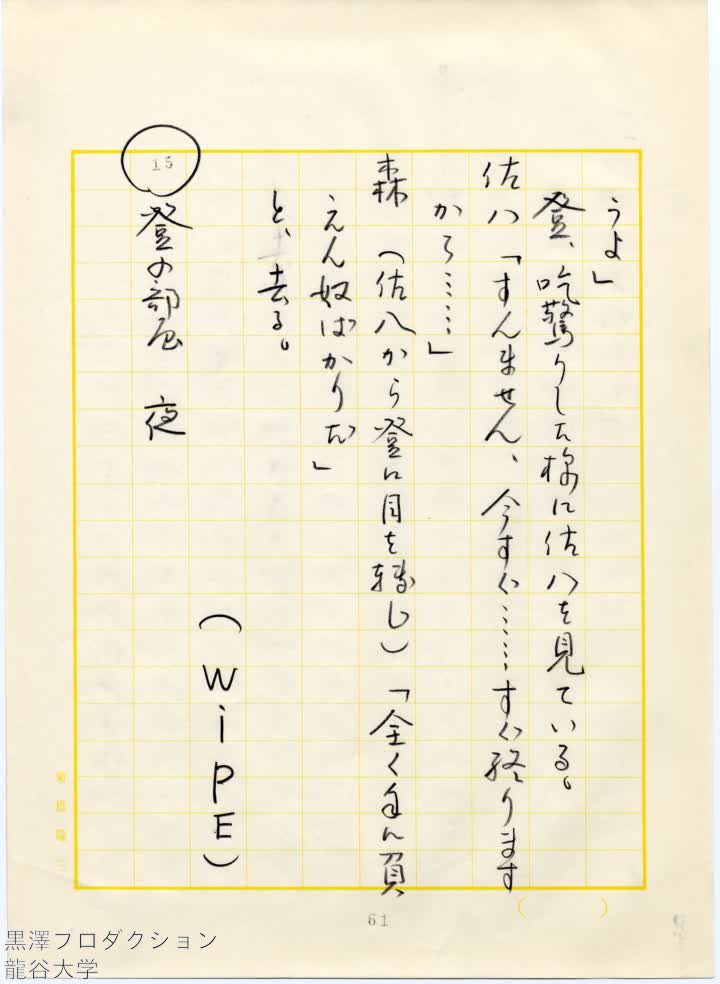 うよ」
登、吃驚りした様に佐八を見ている。
佐八「すんません、今すぐ……すぐ終ります
から……」
森　（佐八から登に目を転し）「全く手に負
えん奴ばかりだ」
と、去る。
（WiPE）
15
登の部屋　夜
61
黒澤プロダクション
龍谷大学